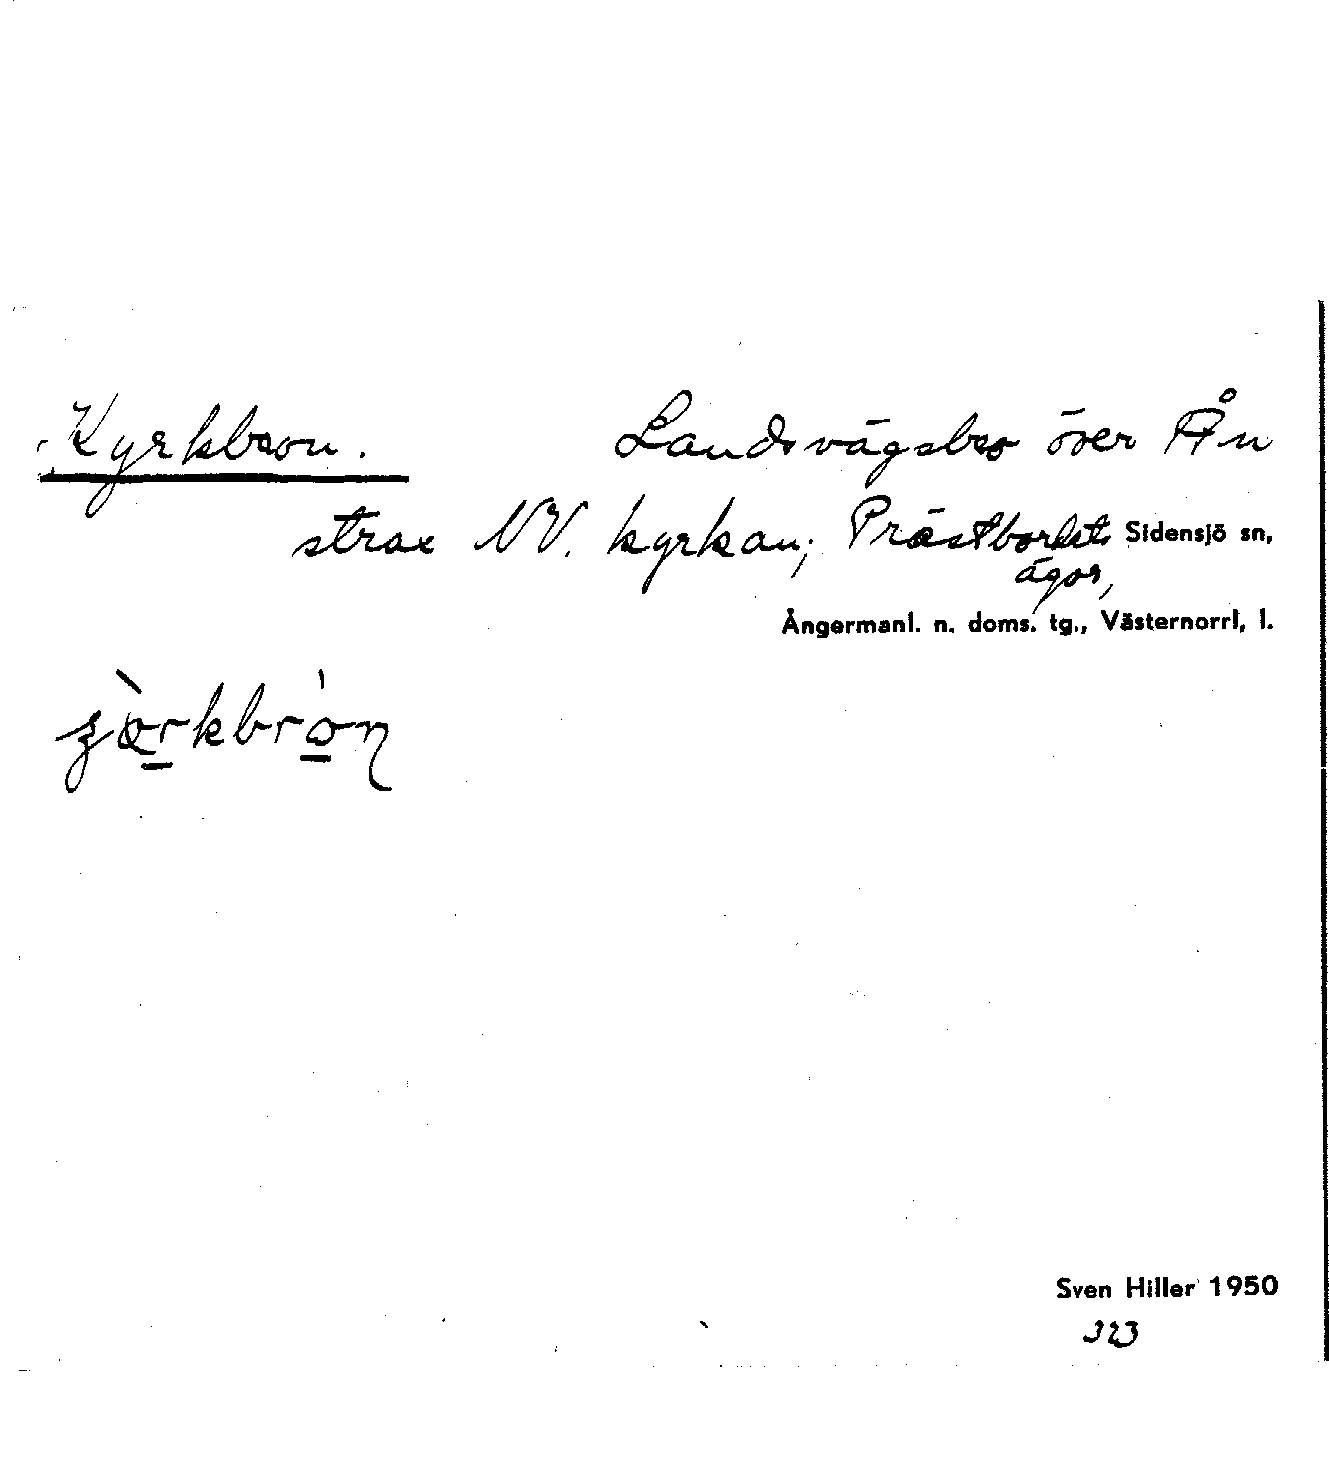 Kyrkbron. Landsvägsbro över Ån
strax NV. kyrkan; Prästbordets Sidensjö sn,
ägor,
Ångermanl. n. doms. tg., Västernorrl, l.
Sven Hiller 1950
323